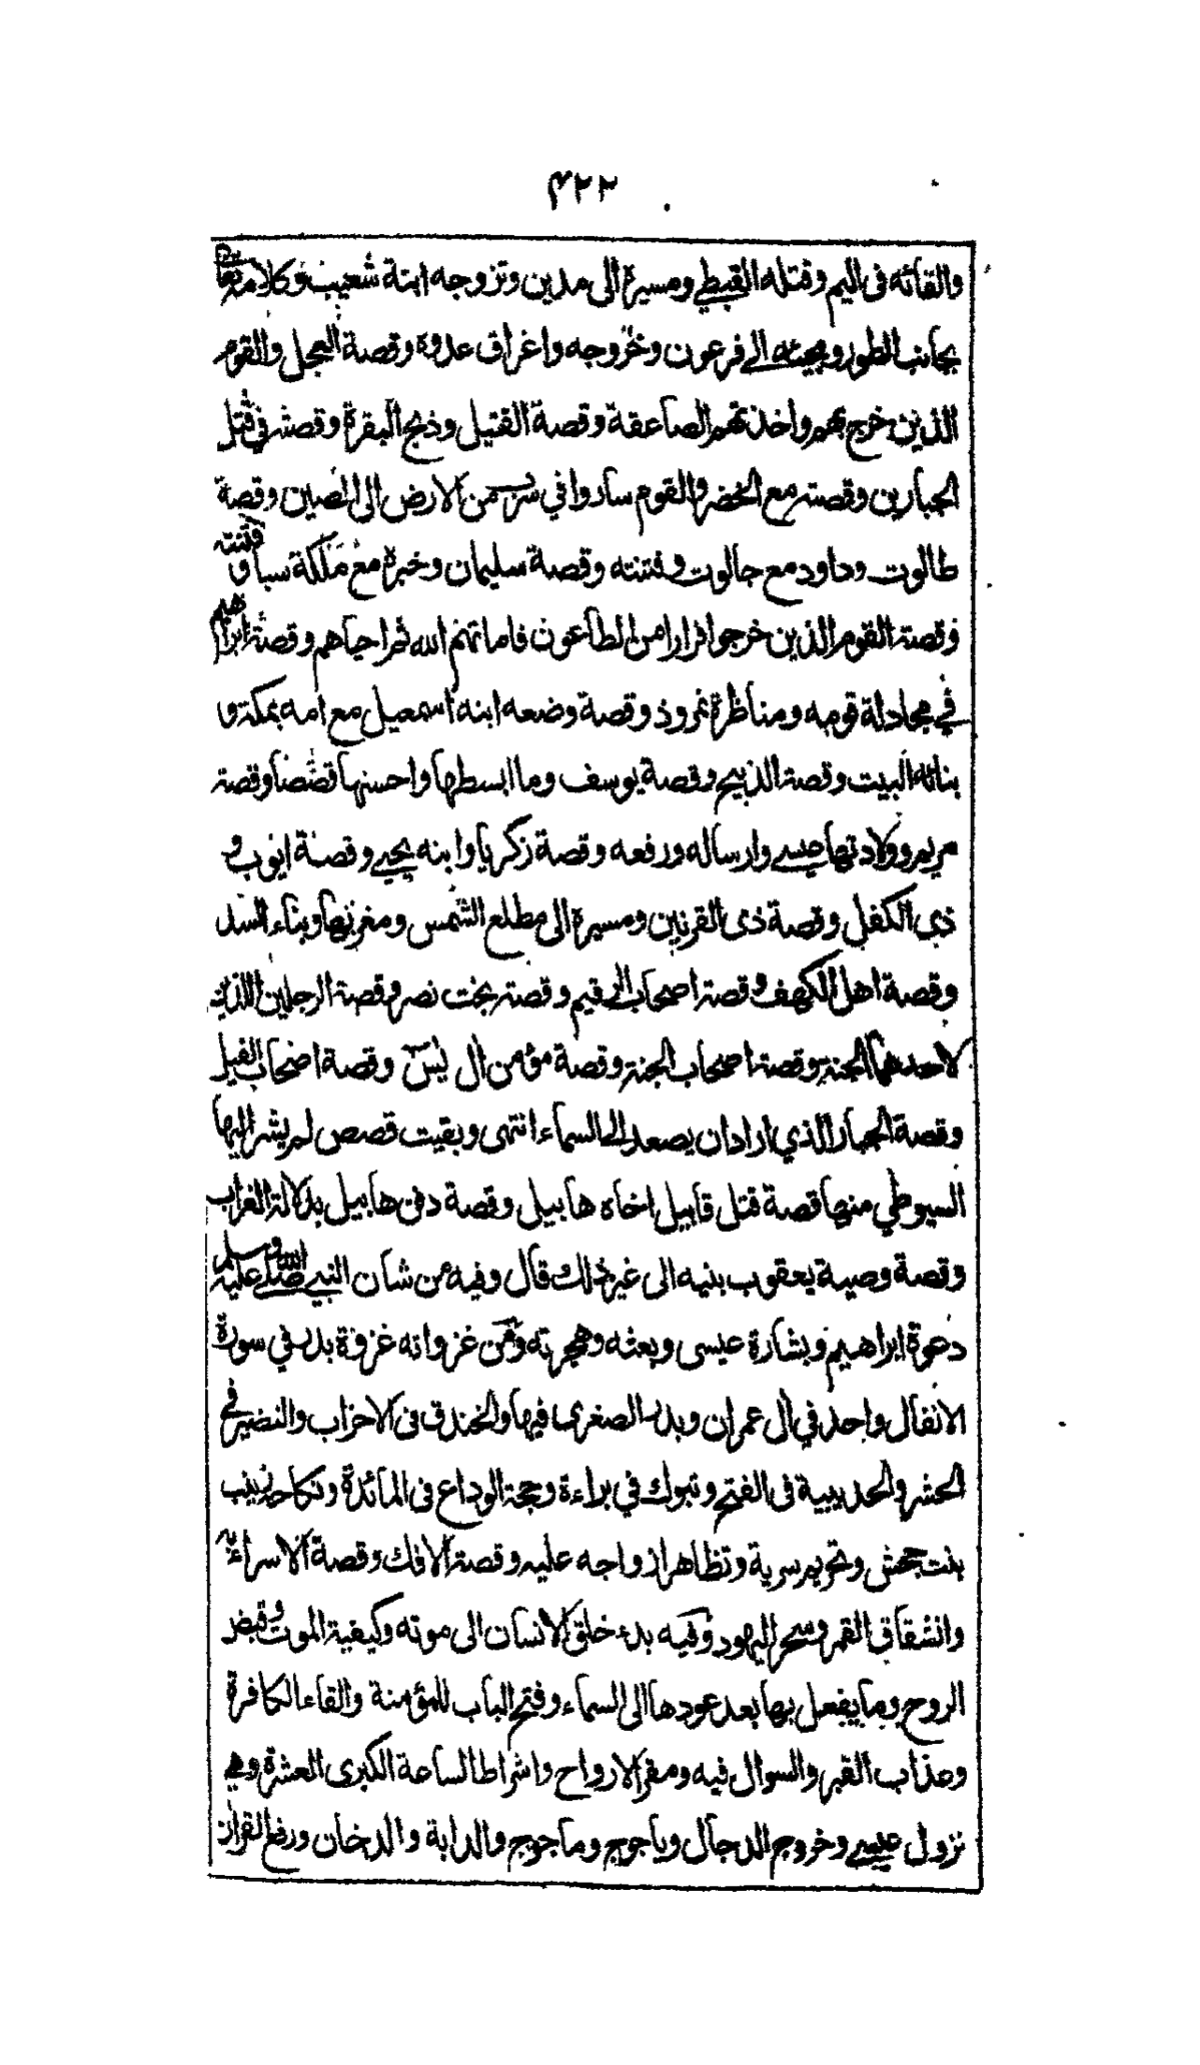 ۴۲۲
والقائه فى اليم وقتله القبطي ومسيرة الى مدين وتزوجه ابنة شعيب وكلامه تعالى
بجانب الطور ومجيئه الى فرعون وخروجه واغراق عدوه وقصة العجل والقوم
الذين خرج بهم واخذتهم الصاعقة وقصة القتيل وذبح البقرة وقصته فى قتل
الجبارين وقصته مع الخضر والقوم ساروا في سرب من الارض الى الصين وقصة
طالوت وداود مع جالوت وفتنته وقصة سليمان وخبرة مع ملكة سبا وفتنته
وقصة القوم الذين خرجوا فرارا من الطاعون فاماتهم الله ثم احياهم وقصة ابراهيم
في مجادلة قومه ومناظرة نمروذ وقصة وضعه ابنه اسمعيل مع امه بمكة و
بنائه البيت وقصة الذبيح وقصة يوسف وما ابسطها واحسنها قصصا وقصة
مريم وولادتها عيسى وارساله ورفعه وقصة زكريا وابنه يحيى وقصة ايوب و
ذي الكفل وقصة ذى القرنين ومسيرة الى مطلع الشمس ومغربها وبناء السد
وقصة اهل الكهف وقصة اصحاب الرقيم وقصة بخت نصر وقصة الرجلين الذين
لاحدهما الجنة وقصة اصحاب الجنة وقصة مؤمن ال يس وقصة اصحاب الفيل
وقصة الجبار الذي اراد ان يصعد الى السماء انتهى وبقيت قصص لم يشر اليها
السيوطي منها قصة قتل قابيل اخاه هابيل وقصة دفن هابيل بدلالة الغراب
وقصة وصية يعقوب بنيه الى غير ذلك قال وفيه من شان النبي صلى الله عليه وسلم
دعوة ابراهيم وبشارة عيسى وبعثه وهجرته ومن غزواته غزوة بدر في سورة
الانفال واحد في ال عمران وبدر الصغرى فيها والخندق فى الاحزاب والنضير فى
الحشر والحديبية فى الفتح وتبوك في براءة وحجة الوداع فى المائدة ونكاحه زينب
بنت جحش وتحريم سرية وتظاهر ازواجه عليه وقصة الافك وقصة الاسراء به
وانشقاق القمر وسحر اليهود وفيه بدء خلق الانسان الى موته وكيفية الموت وقبض
الروح وما يفعل بها بعد عودها الى السماء وفتح الباب للمؤمنة والقاء الكافرة
وعذاب القبر والسوال فيه ومقر الارواح واشراط الساعة الكبرى العشرة وهى
نزول عيسى وخروج الدجال وياجوج وماجوج والدابة والدخان ورفع القران